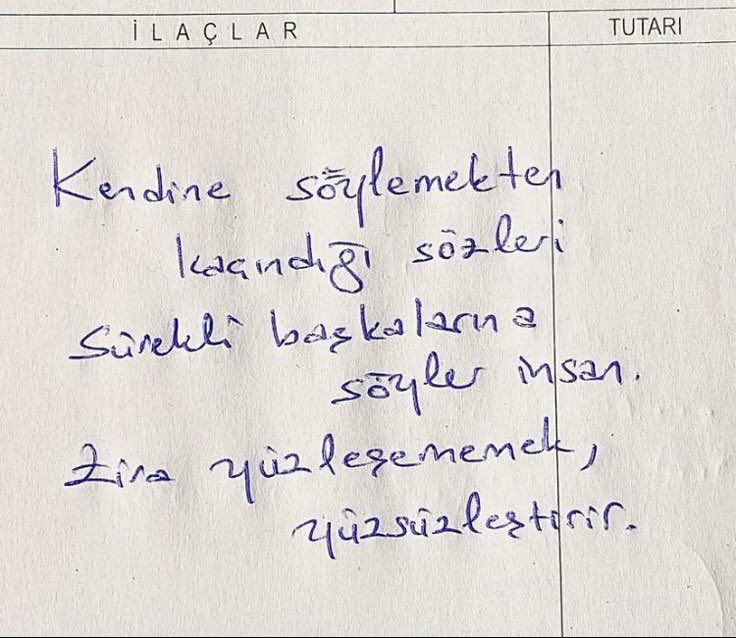 İLAÇLAR TUTARI
Kendine söylemekten
kaçındığı sözleri
Sürekli başkalarına
söyler insan.
Zira yüzleşememek,
yüzsüzleştirir.